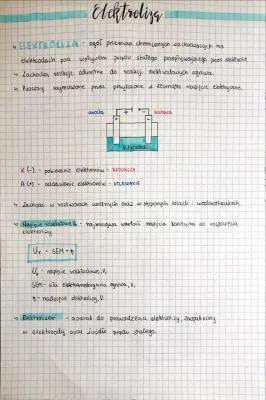 Elektroliza
↳ ELEKTROLIZA - ogół przemian chemicznych zachodzących na
elektrodach pod wpływem prądu stałego przepływającego przez elektrolit
↳ Zachodzą reakcje odwrotne do reakcji elektrodowych ogniwa.
↳ Procesy wymuszone przez przyłożone z zewnątrz napięcie elektryczne.
anoda katoda
+ -
elektrolit
K (-) - pobieranie elektronów - REDUKCJA
A (+) - oddawanie elektronów - UTLENIANIE
↳ Zachodzi w roztworach wodnych oraz w stopionych solach i wodorotlenkach.
↳ Napięcie rozkładowe Uᵣ - najmniejsza wartość napięcia konieczna do rozpoczęcia
elektrolizy.
Uᵣ = SEM + η
Uᵣ - napięcie rozkładowe, V,
SEM - siła elektromotoryczna ogniwa, V,
η - nadnapięcie elektrolizy, V.
↳ Elektrolizer - aparat do prowadzenia elektrolizy, zaopatrzony
w elektrody oraz źródło prądu stałego.